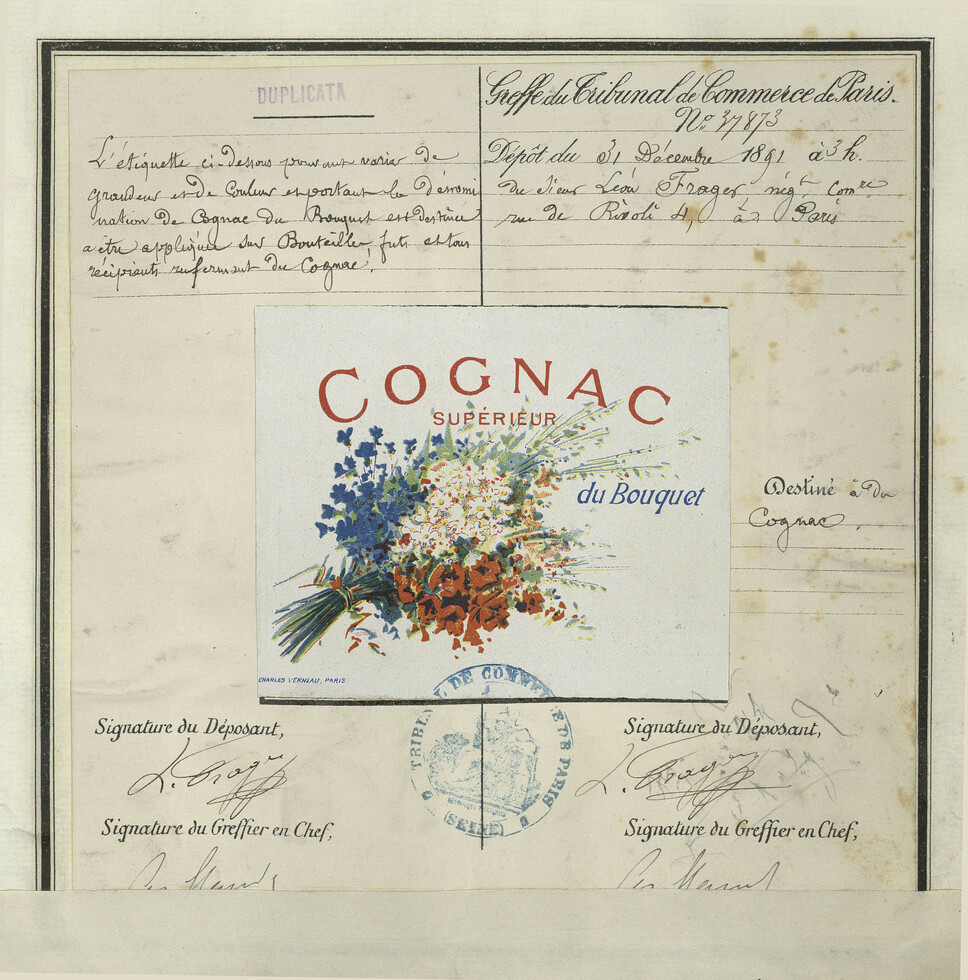 DUPLICATA
L'étiquette ci-dessous pouvant varier de
grandeur et de Couleur et portant la Dénomi
nation de Cognac du Bouquet est destinée
a être appliquée sur Bouteilles futs et tous
récipients renfermant du Cognac.
Greffe du Tribunal de Commerce de Paris.
No. 37873
Dépôt du 31 Décembre 1891 à 3 h.
du Sieur Léon Frager négt. comre
rue de Rivoli 4, à Paris
COGNAC
SUPÉRIEUR
du Bouquet
CHARLES VERNEAU, PARIS
Destiné à du
Cognac.
TRIBUNAL DE COMMERCE DE PARIS
(SEINE)
Signature du Déposant,
L. Frager
Signature du Greffier en Chef,
Signature du Déposant,
L. Frager
Signature du Greffier en Chef,